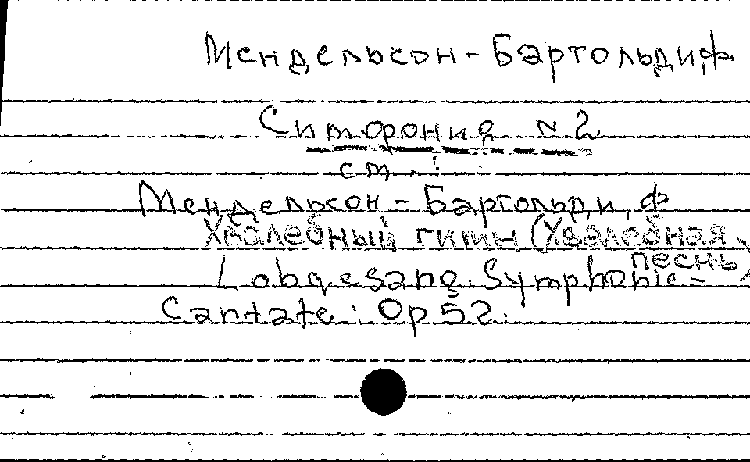 Мендельсон-Бартольди,Ф
Симфония № 2
см.:
Мендельсон-Бартольди,Ф
Хвалебный гимн (Хвалебная
песнь)
Lobgesang. Symphonie-
Cantate: Op 52.